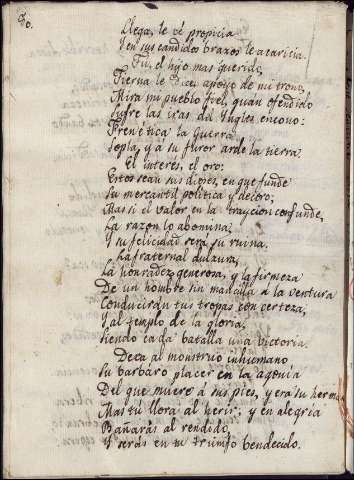 80.
Llega, te vé propicia
Y en sus candidos brazos te acaricia.
Tú, el hijo mas querido,
Tierna le dice, apoyo de mi trono,
Mira mi pueblo fiel, quan ofendido
Sufre las iras del Ingles encono:
Frenética la Guerra
Sopla, y á su furor arde la tierra.
El interés, el oro:
Estos sean sus dioses, en que funde
Su mercantil politica y decoro;
Mas si el valor en la traycion confunde,
La razon lo abomina;
Y su felicidad será su ruina.
La fraternal dulzura,
La honradez generosa, y la firmeza
De un hombre sin mancilla á la ventura
Conducirán tus tropas con certeza,
Y al templo de la gloria,
Siendo cada batalla una victoria.
Dexa al monstruo inhumano
Su barbaro placer en la agonia
Del que muere á sus pies, y era su herma
Mas tú llora al herir; y en alegria
Bañarás al rendido,
Y serás en tu triunfo bendecido.